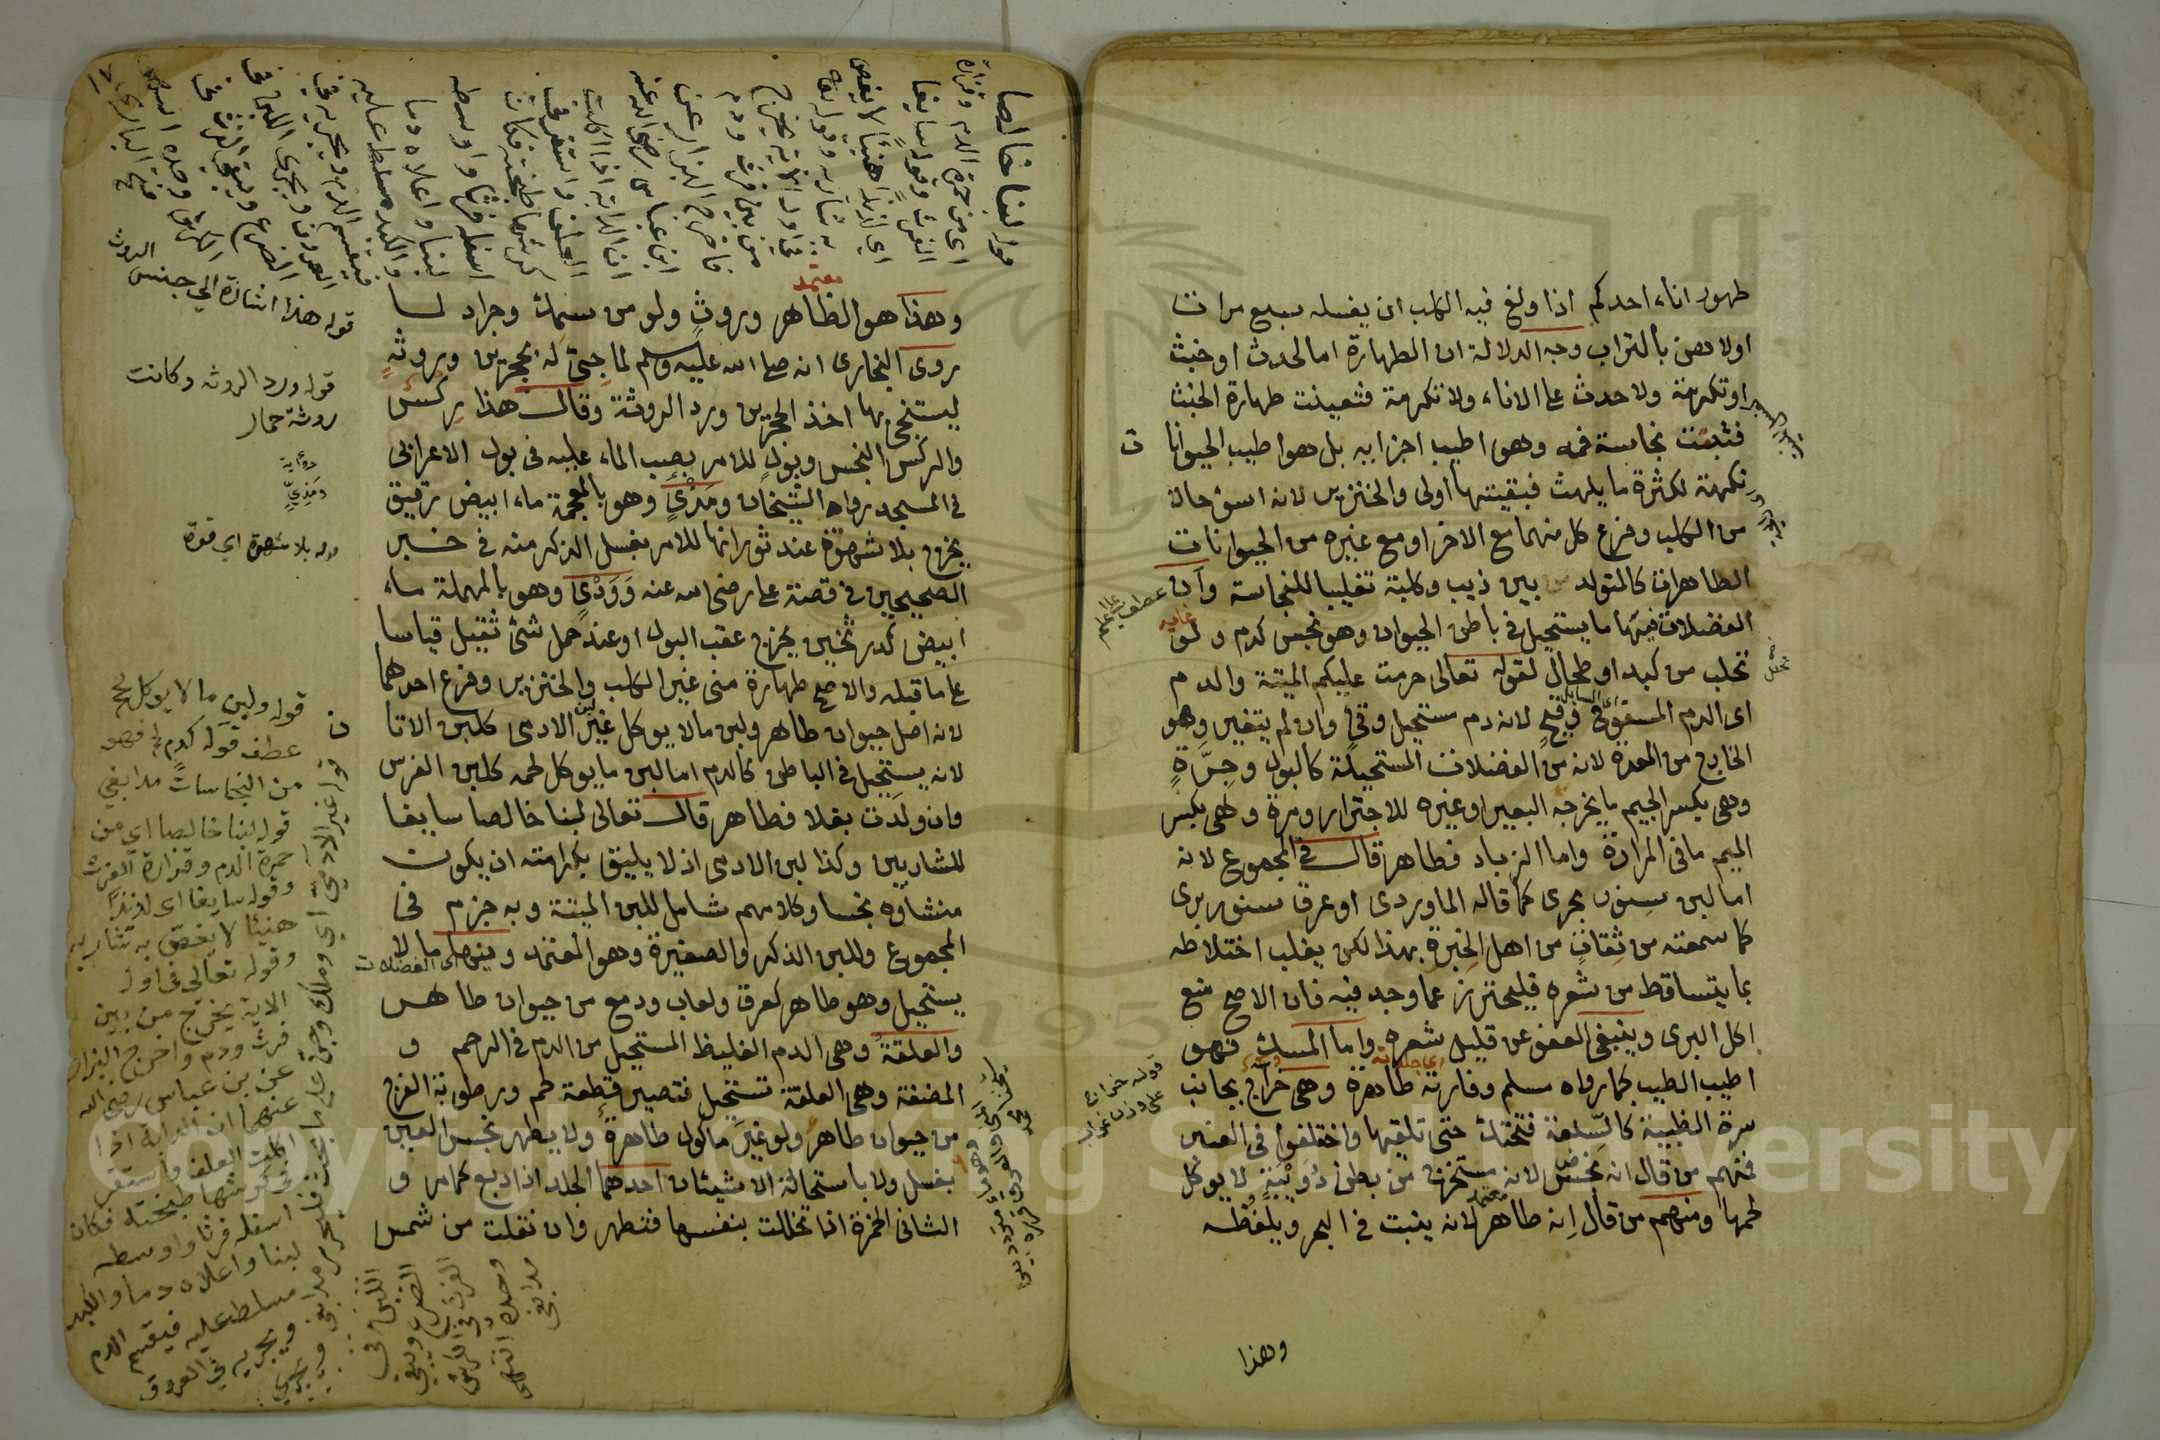 طهور اناء احدكم اذا ولغ فيه الكلب ان يغسله سبع مرات
اولاهن بالتراب وجه الدلالة ان الطهارة اما لحدث او خبث
او تكرمة ولا حدث على الاناء ولا تكرمة فتعينت طهارة الخبث
فثبتت نجاسة فمه وهو اطيب اجزايه بل هو اطيب الحيوانات
نكهة لكثرة ما يلهث فبقيتها اولى والخنزير لانه اسوء حالا
من الكلب وفرع كل منهما مع الاخر او مع غيره من الحيوانات
الطاهرات كالمتولد بين ذيب وكلبة تغليبا للنجاسة وان
الفضلات فيها ما يستحيل في باطن الحيوان وهو نجس كدم ولو
تحلب من كبد او طحال لقوله تعالى حرمت عليكم الميتة والدم
اى الدم المسفوح وقيح لانه دم مستحيل وقئ وان لم يتغير وهو
الخارج من المعدة لانه من الفضلات المستحيلة كالبول وجرة
وهى بكسر الجيم ما يخرجه البعير او غيره للاجترار ومرة وهى بكسر
الميم ما في المرارة واما الزباد فطاهر قال في المجموع لانه
اما لبن سنور بحرى كما قاله الماوردى او عرق سنور برى
كما سمعته من ثقات من اهل الخبرة بهذا لكن يغلب اختلاطه
بما يتساقط من شعره فليحترز عما وجد فيه فان الاصح منع
اكل البرى وينبغى العفو عن قليل شعره واما المسك فهو
اطيب الطيب كما رواه مسلم وفارته طاهرة وهى خراج بجانب
سرة الظبية كالسلعة فتحتك حتى تلقيها واختلفوا في العنبر
فمنهم من قال انه نجس لانه مستخرج من بطن دويبة لا يوكل
لحمها ومنهم من قال انه طاهر لانه ينبت في البحر ويلفظه
وهذا
قوله خراج
على وزن غراب
معتمد
وهذا هو الظاهر وروث ولو من سمك وجراد لما
روى البخارى انه صلى الله عليه وسلم لما جئ له بحجرين وروثة
ليستنجى بها اخذ الحجرين ورد الروثة وقال هذا ركس
والركس النجس وبول للامر بصب الماء عليه في بول الاعرابى
في المسجد رواه الشيخان ومذى وهو بالمعجمة ماء ابيض رقيق
يخرج بلا شهوة عند ثورانها للامر بغسل الذكر منه في خبر
الصحيحين في قصة على رضى الله عنه وودى وهو بالمهملة ماء
ابيض كدر ثخين يخرج عقب البول او عند حمل شئ ثقيل قياسا
على ما قبله والاصح طهارة منى غير الكلب والخنزير وفرع احدهما
لانه اصل حيوان طاهر ولبن ما لا يوكل غير لبن الادمى كلبن الاتان
لانه يستحيل في الباطن كالدم اما لبن ما يوكل لحمه كلبن الفرس
وان ولدت بغلا فطاهر قال تعالى لبنا خالصا سايغا
للشاربين وكذا لبن الادمى اذ لا يليق بكرامته ان يكون
منشاؤه نجسا وكلامهم شامل للبن الميتة وبه جزم في
المجموع وللبن الذكر والصغيرة وهو المعتمد ومنها ما لا
اى الفضلات
يستحيل وهو طاهر كعرق ولعاب ودمع من حيوان طاهر
والعلقة وهى الدم الغليظ المستحيل من الدم في الرحم و
المضغة وهى العلقة تستحيل فتصير قطعة لحم ورطوبة الفرج
من حيوان طاهر ولو غير ماكول طاهرة ولا يطهر نجس العين
بغسل ولا باستحالة الا شيئان احدهما الجلد اذا دبغ كما مر و
الثانى الخمرة اذا تخللت بنفسها فتطهر وان نقلت من شمس
قوله لبنا خالصا
اى من حمرة الدم وقذارة
الفرث وقوله سايغا
اي لذيذا هنيئا لا يغص
به شاربه وقوله
في اول الاية يخرج
من بين فرث ودم
فاخرج البزار عن
ابن عباس رضى الله عنه
ان الدابة اذا اكلت
العلف واستقر في
كرشها طبخته فكان
اسفله فرثا واوسطه
لبنا واعلاه دما
والكبد مسلط عليه
فيقسم الدم ويجريه في
العروق ويجرى اللبن في
الضرع ويبقى الفرث في
الكرش وحده
فتح البارى
قوله هذا اشارة الى جنس الروث
قوله ورد الروثه وكانت
روثة حمار
قوله بلا شهوة اي قوة
قوله ولبن ما لا يوكل الخ
عطف قوله كدم الخ فهو
من النجاسات مدابغي
قوله لبنا خالصا اي من
حمرة الدم وقذارة الفرث
وقوله سايغا اى لذيذا
هنيئا لا يغص به شاربه
وقوله تعالى في اول
الاية يخرج من بين
فرث ودم واخرج البزار
عن بن عباس رضى الله
عنهما ان الدابة اذا
اكلت العلف واستقر
في كرشها طبخته فكان
اسفله فرثا واوسطه
لبنا واعلاه دما والكبد
مسلط عليه فيقسم الدم
ويجريه في العروق
اللبن في
الضرع ويبقى
الفرث في الكرش
وحده انتهى
مدابغي